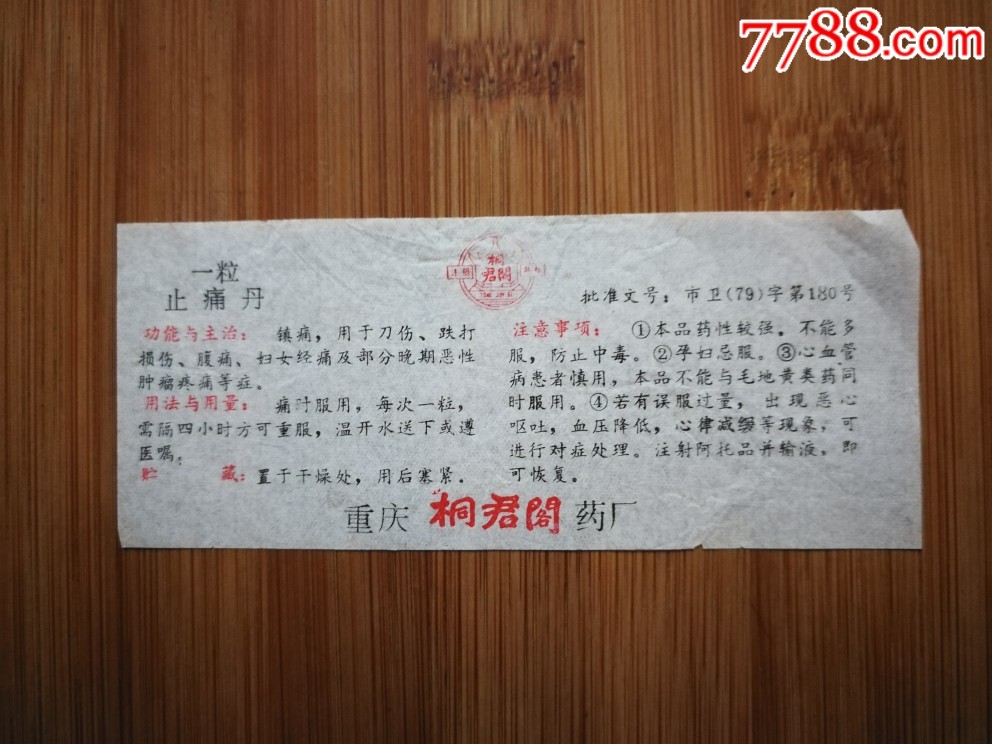 7788.com
一粒
止痛丹
桐
君阁
批准文号：市卫(79)字第180号
功能与主治： 镇痛，用于刀伤、跌打
损伤、腹痛、妇女经痛及部分晚期恶性
肿瘤疼痛等症。
用法与用量：痛时服用，每次一粒，
需隔四小时方可重服，温开水送下或遵
医嘱。
贮 藏：置于干燥处，用后塞紧．
注意事项： ①本品药性较强．不能多
服，防止中毒。②孕妇忌服。③心血管
病患者慎用，本品不能与毛地黄类药同
时服用。④若有误服过量，出现恶心
呕吐，血压降低，心律减缓等现象，可
进行对症处理。注射阿托品并输液，即
可恢复。
重庆桐君阁药厂